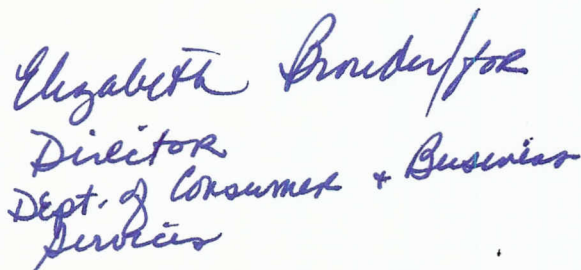 Elizabeth Browder/for
Director
Dept. of Consumer + Business
Services